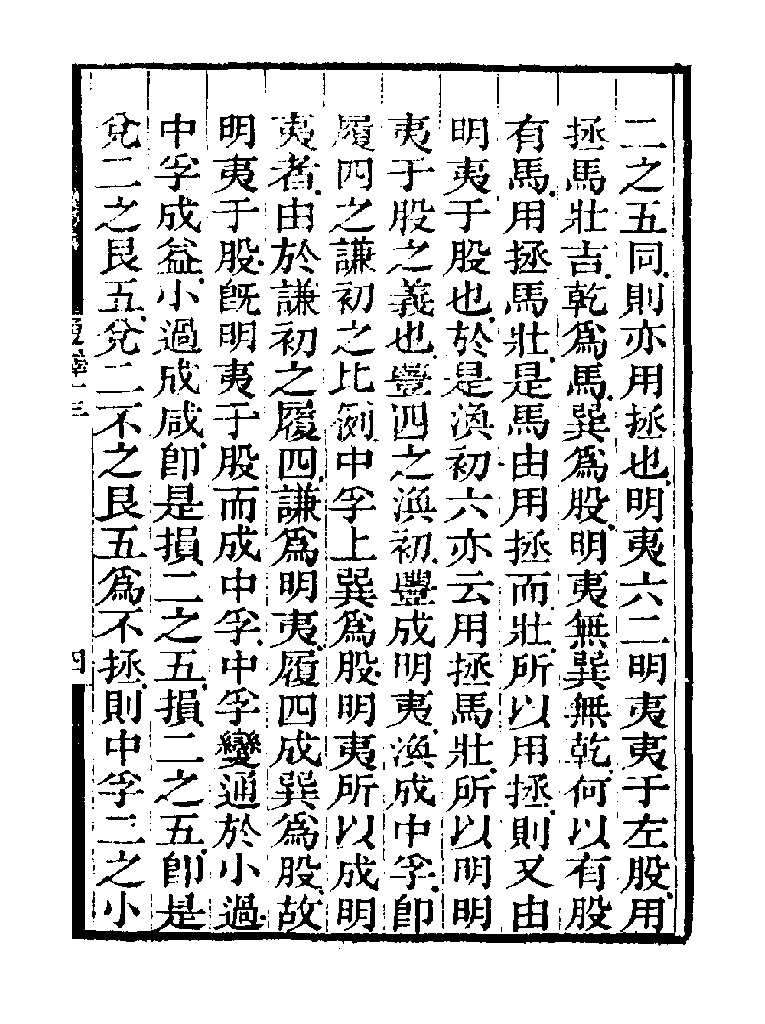 二之五同則亦用拯也明夷六二明夷夷于左股用
拯馬壯吉乾爲馬巽爲股明夷無巽無乾何以有股
有馬用拯馬壯是馬由用拯而壯所以用拯則又由
明夷于股也於是渙初六亦云用拯馬壯所以明明
夷于股之義也豐四之渙初豐成明夷渙成中孚卽
履四之謙初之比例中孚上巽爲股明夷所以成明
夷者由於謙初之履四謙爲明夷履四成巽爲股故
明夷于股旣明夷于股而成中孚中孚變通於小過
中孚成益小過成咸卽是損二之五損二之五卽是
兌二之艮五兌二不之艮五爲不拯則中孚二之小
四